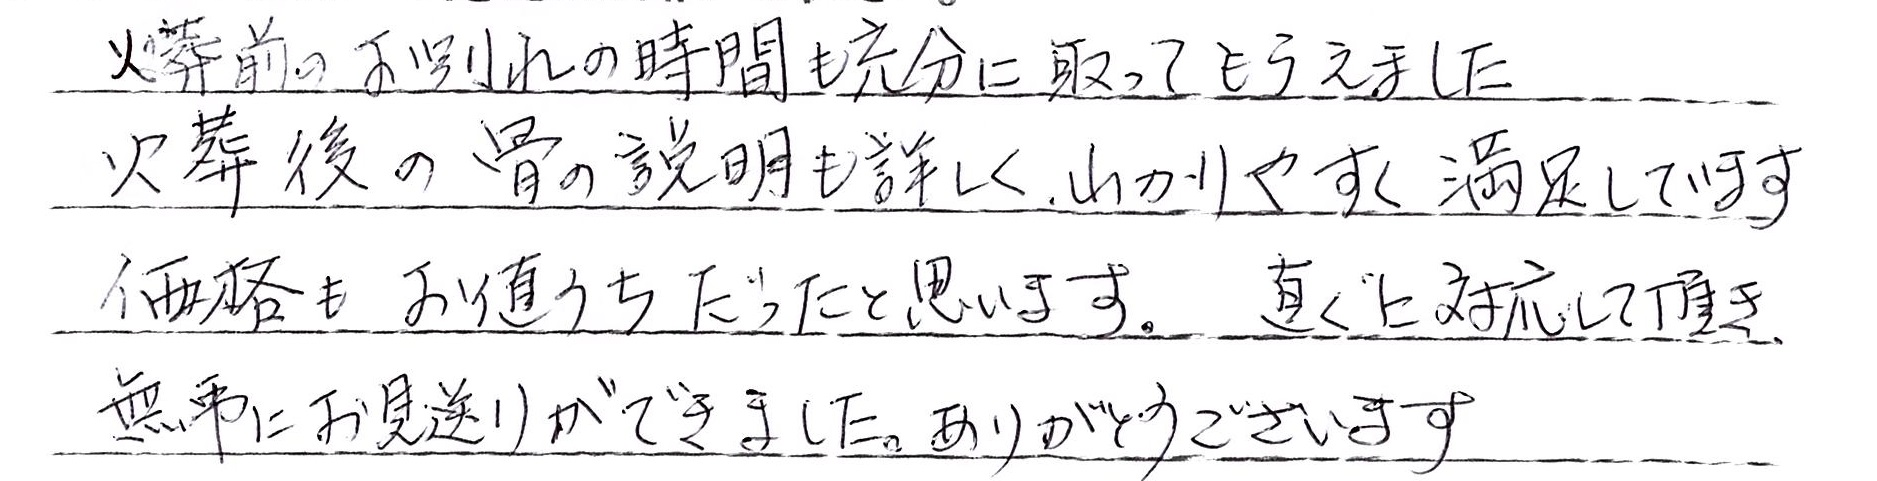 火葬前のお別れの時間も充分に取ってもらえました
火葬後の骨の説明も詳しく、わかりやすく満足しています
価格もお値うちだったと思います。 直ぐに対応して頂き、
無事にお見送りができました。ありがとうございます